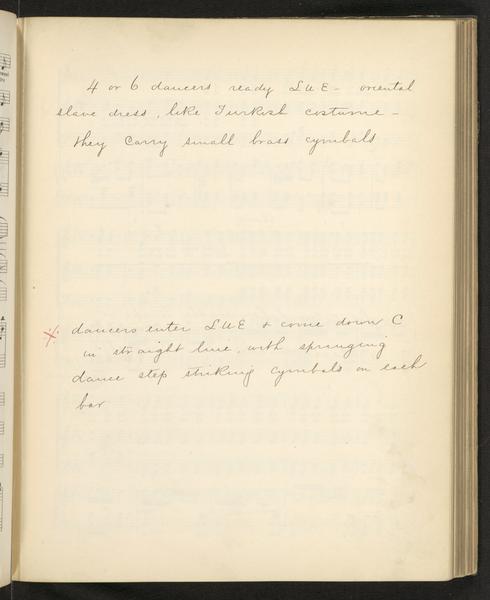 4 or 6 dancers ready L U E - oriental
slave dress, like Turkish costume -
they carry small brass cymbals
dancers enter L U E & come down C
in straight line, with springing
dance step striking cymbals on each
bar